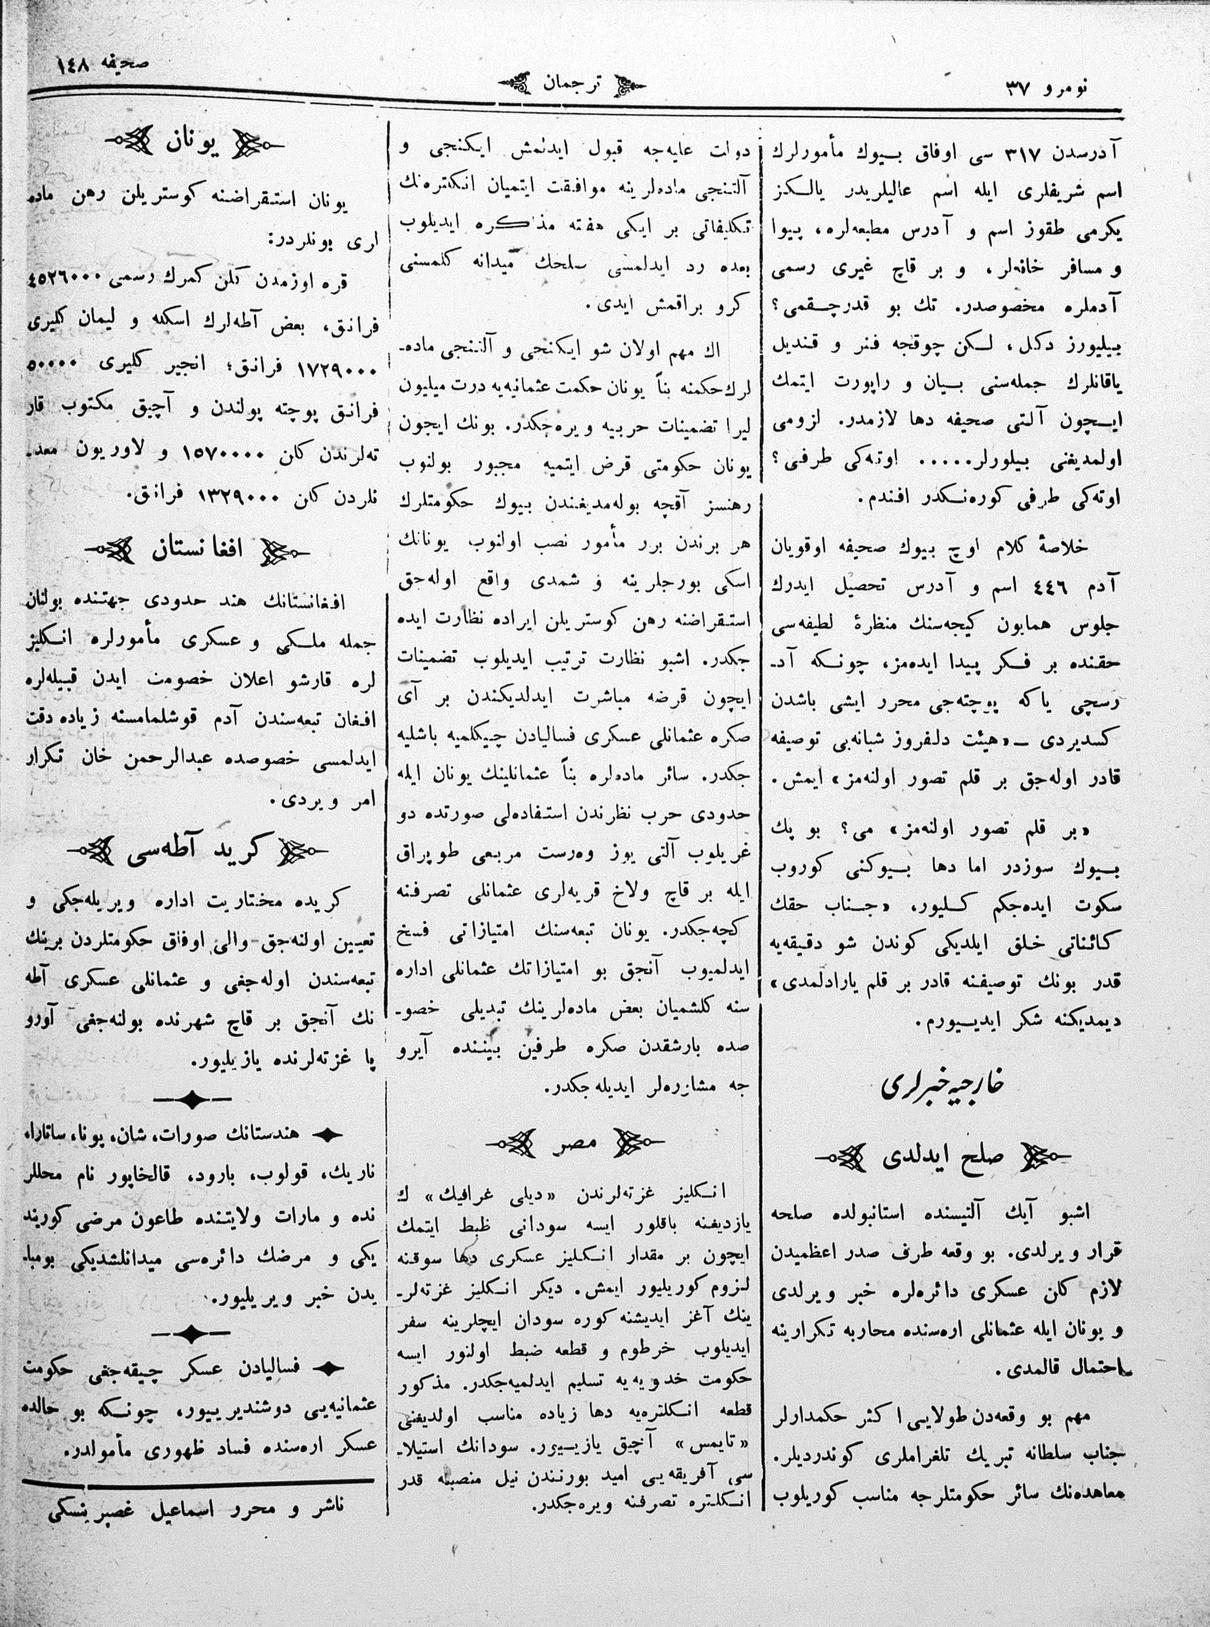 نومرو ٣٧
ترجمان
صحيفه ١٤٨
آدرسدن ٣١٧ سی اوفاق بیوك مأمورلرك
اسم شریفلری ایله اسم عالیلریدر یالكز
یكرمی طقوز اسم و آدرس مطبعه‌لره، پیوا
و مسافر خانه‌لر، و بر قاچ غیری رسمی
آدملره مخصوصدر. تك بو قدرچقمی؟
بیلیورز دكل، لكن چوقجه فنر و قندیل
یاقانلرك جمله‌سنی بیان و راپورت ایتمك
ایچون آلتی صحیفه دها لازمدر. لزومی
اولمدیغنی بیلورلر..... اوته‌كی طرفی؟
اوته‌كی طرفی كوره‌نكدر افندم.
خلاصهٔ كلام اوچ بیوك صحیفه اوقویان
آدم ٤٤٦ اسم و آدرس تحصیل ایدرك
جلوس همایون كیجه‌سنك منظرهٔ لطیفه‌سی
حقنده بر فكر پیدا ایده‌مز، چونكه آد-
رسچی یاكه پوچته‌جی محرر ایشی باشدن
كسدیردی — «هیئت دلفروز شبانه‌یی توصیفه
قادر اوله‌جق بر قلم تصور اولنه‌مز» ایمش.
«بر قلم تصور اولنه‌مز» می؟ بو پك
بیوك سوزدر اما دها بیوكنی كوروب
سكوت ایده‌جكم كلیور، «جناب حقك
كائناتی خلق ایلدیكی كوندن شو دقیقه‌یه
قدر بونك توصیفنه قادر بر قلم یارادلمدی»
دیمدیكنه شكر ایدییورم.
خارجیه خبرلری
صلح ایدلدی
اشبو آیك آلتیسنده استانبولده صلحه
قرار ویرلدی. بو وقعه طرف صدر اعظمیدن
لازم كلن عسكری دائره‌لره خبر ویرلدی
و یونان ایله عثمانلی اره‌سنده محاربه تكرارینه
احتمال قالمدی.
مهم بو وقعه‌دن طولایی اكثر حكمدارلر
جناب سلطانه تبریك تلغراملری كوندردیلر.
معاهده‌نك سائر حكومتلرجه مناسب كوریلوب
دولت علیه‌جه قبول ایدلمش ایكنجی و
آلتنجی ماده‌لرینه موافقت ایتمیان انكلتره‌نك
تكلیفاتی بر ایكی هفته مذكره ایدیلوب
بعده رد ایدلمسی سلحك میدانه كلمسنی
كرو براقمش ایدی.
اك مهم اولان شو ایكنجی و آلتنجی ماده-
لرك حكمنه بناً یونان حكمت عثمانیه‌یه درت میلیون
لیرا تضمینات حربیه ویره‌جكدر. بونك ایچون
یونان حكومتی قرض ایتمیه مجبور بولنوب
رهنسز آقچه بوله‌مدیغندن بیوك حكومتلرك
هر برندن برر مأمور نصب اولنوب یونانك
اسكی بورجلرینه و شمدی واقع اوله‌جق
استقراضنه رهن كوستریلن ایراده نظارت ایده
جكدر. اشبو نظارت ترتیب ایدیلوب تضمینات
ایچون قرضه مباشرت ایدلدیكندن بر آی
صكره عثمانلی عسكری فسالیادن چیكلمیه باشلیه
جكدر. سائر ماده‌لره بناً عثمانلینك یونان ایله
حدودی حرب نظرندن استفاده‌لی صورتده دو
غریلوب آلتی یوز وه‌رست مربعی طوپراق
ایله بر قاچ ولاخ قریه‌لری عثمانلی تصرفنه
كچه‌جكدر. یونان تبعه‌سنك امتیازاتی فسخ
ایدلمیوب آنجق بو امتیازاتك عثمانلی اداره
سنه كلشمیان بعض ماده‌لرینك تبدیلی خصو-
صده بارشقدن صكره طرفین بیننده آیرو
جه مشاوره‌لر ایدیله‌جكدر.
مصر
انكلیز غزته‌لرندن «دیلی غرافیك» ك
یازدیغنه باقلور ایسه سودانی ظبط ایتمك
ایچون بر مقدار انكلیز عسكری دها سوقنه
لزوم كوریلیور ایمش. دیكر انكلیز غزته‌لر-
ینك آغز ایدیشنه كوره سودان ایچلرینه سفر
ایدیلوب خرطوم و قطعه ضبط اولنور ایسه
حكومت خدویه‌یه تسلیم ایدلمیه‌جكدر. مذكور
قطعه انكلتره‌یه دها زیاده مناسب اولدیغنی
«تایمس» آچیق یازییور. سودانك استیلا-
سی آفریقه‌یی امید بورنندن نیل منصبنه قدر
انكلتره تصرفنه ویره‌جكدر.
یونان
یونان استقراضنه كوستریلن رهن ماده
لری بونلردر:
قره اوزمدن كلن كمرك رسمی ٤٥٢٦٠٠٠
فرانق، بعض آطه‌لرك اسكله و لیمان كلیری
١٧٢٩٠٠٠ فرانق؛ انجیر كلیری ٥٠٠٠٠
فرانق پوچته پولندن و آچیق مكتوب قار
ته‌لرندن كلن ١٥٧٠٠٠٠ و لاوریون معد-
نلردن كلن ١٣٢٩٠٠٠ فرانق.
افغانستان
افغانستانك هند حدودی جهتنده بولنان
جمله ملكی و عسكری مأمورلره انكلیز
لره قارشو اعلان خصومت ایدن قبیله‌لره
افغان تبعه‌سندن آدم قوشلمامسنه زیاده دقت
ایدلمسی خصوصده عبدالرحمن خان تكرار
امر ویردی.
كرید آطه‌سی
كریده مختاریت اداره ویریله‌جكی و
تعیین اولنه‌جق والی اوفاق حكومتلردن برینك
تبعه‌سندن اوله‌جغی و عثمانلی عسكری آطه
نك آنجق بر قاچ شهرنده بولنه‌جغی آورو
پا غزته‌لرنده یازیلیور.
هندستانك صورات، شان، پونا، ساتارا،
ناریك، قولوب، بارود، قالخاپور نام محللر
نده و مارات ولایتنده طاعون مرضی كوریند
یكی و مرضك دائره‌سی میدانلشدیكی بومبا-
یدن خبر ویریلیور.
فسالیادن عسكر چیقه‌جغی حكومت
عثمانیه‌یی دوشندیرییور، چونكه بو حالده
عسكر اره‌سنده فساد ظهوری مأمولدر.
ناشر و محرر اسماعیل غصپرینسكی